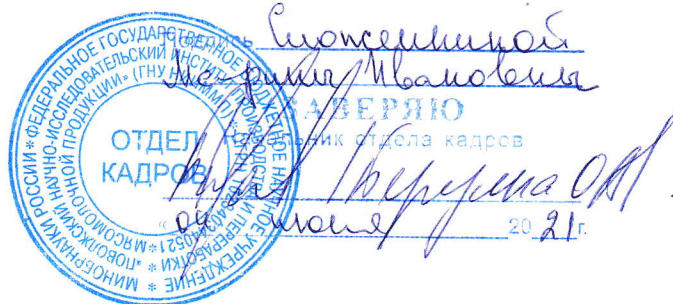 Подпись Сложенкиной
Марины Ивановны
ЗАВЕРЯЮ
Начальник отдела кадров
ОТДЕЛ
КАДРОВ
МИНОБРНАУКИ РОССИИ * ФЕДЕРАЛЬНОЕ ГОСУДАРСТВЕННОЕ БЮДЖЕТНОЕ НАУЧНОЕ УЧРЕЖДЕНИЕ *
"ПОВОЛЖСКИЙ НАУЧНО-ИССЛЕДОВАТЕЛЬСКИЙ ИНСТИТУТ ПРОИЗВОДСТВА И ПЕРЕРАБОТКИ * МЯСОМОЛОЧНОЙ ПРОДУКЦИИ» (ГНУ НИИММП
июня 2021 г.